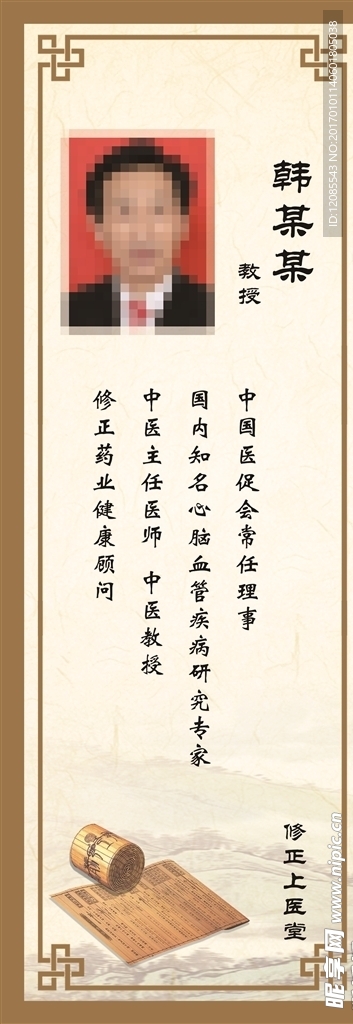 韩某某
教授
中国医促会常任理事
国内知名心脑血管疾病研究专家
中医主任医师 中医教授
修正药业健康顾问
修正上医堂
昵享网 www.nipic.cn
ID:12085543 NO:20170101140601805038